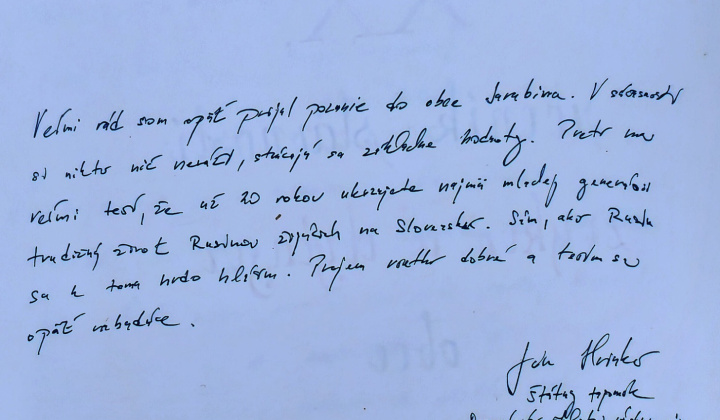 Veľmi rád som opäť prijal pozvanie do obce Jarabina. V súčasnosti
si nikto nič neváži, strácajú sa základné hodnoty. Preto ma
veľmi teší, že už 20 rokov ukazujete najmä mladej generácii
tradičný život Rusínov žijúcich na Slovensku. Sám, ako Rusín
sa k tomu hrdo hlásim. Prajem všetko dobré a teším sa
opäť nabudúce.
Ján
štátny tajomník